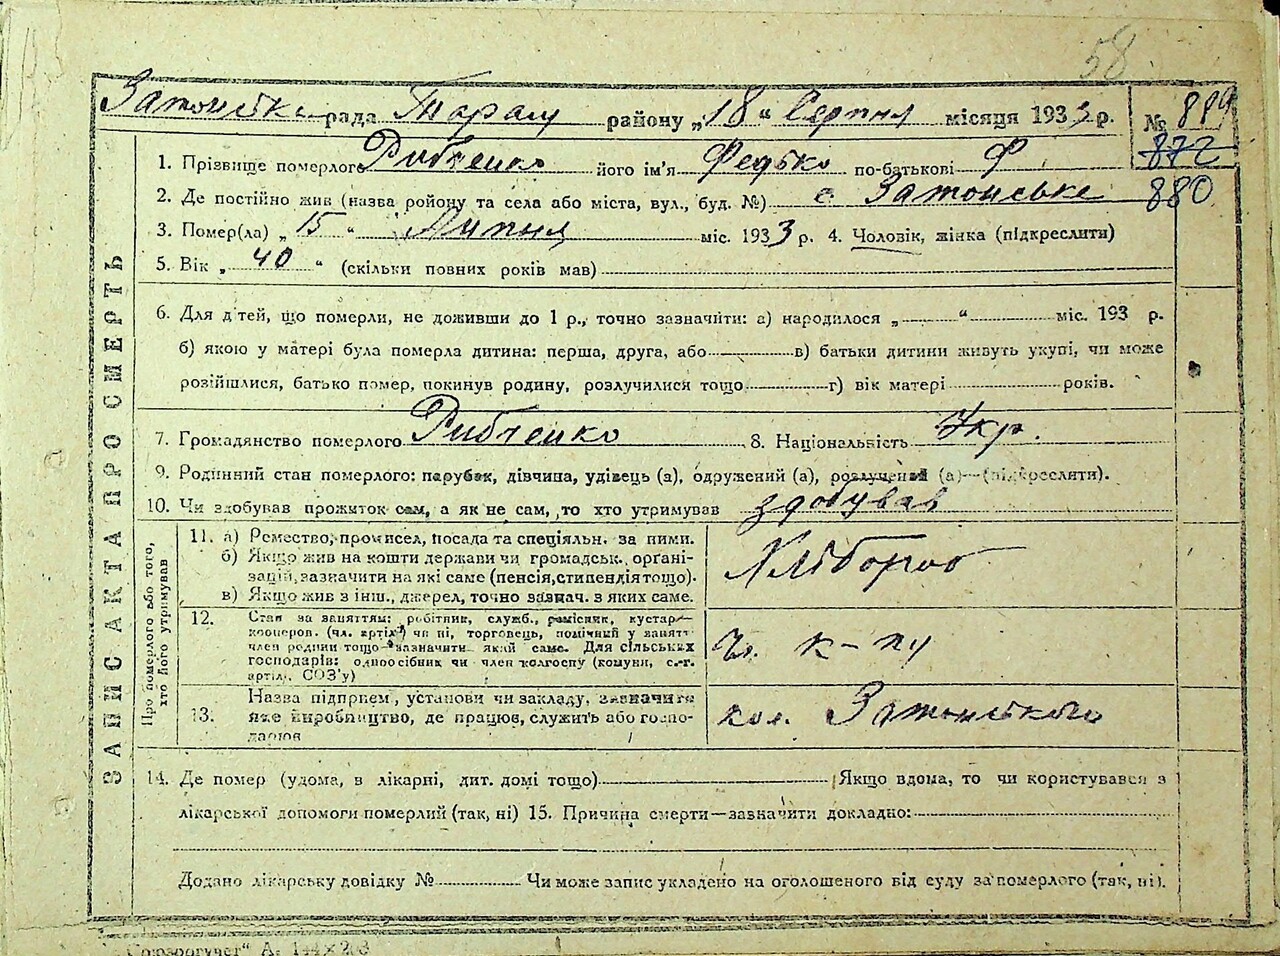 58
Затонська рада Таращ району „18“ Серпня місяця 1933 р. № 889
872
880
ЗАПИС АКТА ПРО СМЕРТЬ
1. Прізвище померлого Рибченко його ім'я Федько по-батькові Ф
2. Де постійно жив (назва району та села або міста, вул., буд. №) с. Затонське
3. Помер(ла) „15“ Липня міс. 1933 р. 4. Чоловік, жінка (підкреслити)
5. Вік „40“ (скільки повних років мав)
6. Для дітей, що померли, не доживши до 1 р., точно зазначити: а) народилося „ “ міс. 193 р.
б) якою у матері була померла дитина: перша, друга, або в) батьки дитини живуть укупі, чи може
розійшлися, батько помер, покинув родину, розлучилися тощо г) вік матері років.
7. Громадянство померлого Рибченко 8. Національність Укр.
9. Родинний стан померлого: парубок, дівчина, удівець (а), одружений (а), розлучений (а)—(підкреслити).
10. Чи здобував прожиток сам, а як не сам, то хто утримував здобував
Про померлого або того, хто його утримував
11. а) Ремество, промисел, посада та спеціяльн. за ними.
б) Якщо жив на кошти держави чи громадськ. органі-
зацій, зазначити на які саме (пенсія, стипендія тощо).
в) Якщо жив з інш., джерел, точно зазнач. з яких саме.
Хлібороб
12. Стан за заняттям: робітник, служб., ремісник, кустар—
кооперов. (чл. артілі) чи ні, торговець, помічний у занятт
член родини тощо зазначити який саме. Для сільських
господарів: одноосібник чи член колгоспу (комуни, с.-г.
артіл. СОЗ'у)
Чл. к-пу
13. Назва підприєм., установи чи закладу, зазначити
яке виробництво, де працює, служить або госпо-
дарює
кол. Затонського
14. Де помер (удома, в лікарні, дит. домі тощо) Якщо вдома, то чи користувався з
лікарської допомоги померлий (так, ні) 15. Причина смерти—зазначити докладно:
Додано лікарську довідку № Чи може запис укладено на оголошеного від суду за померлого (так, ні).
А. 144×203